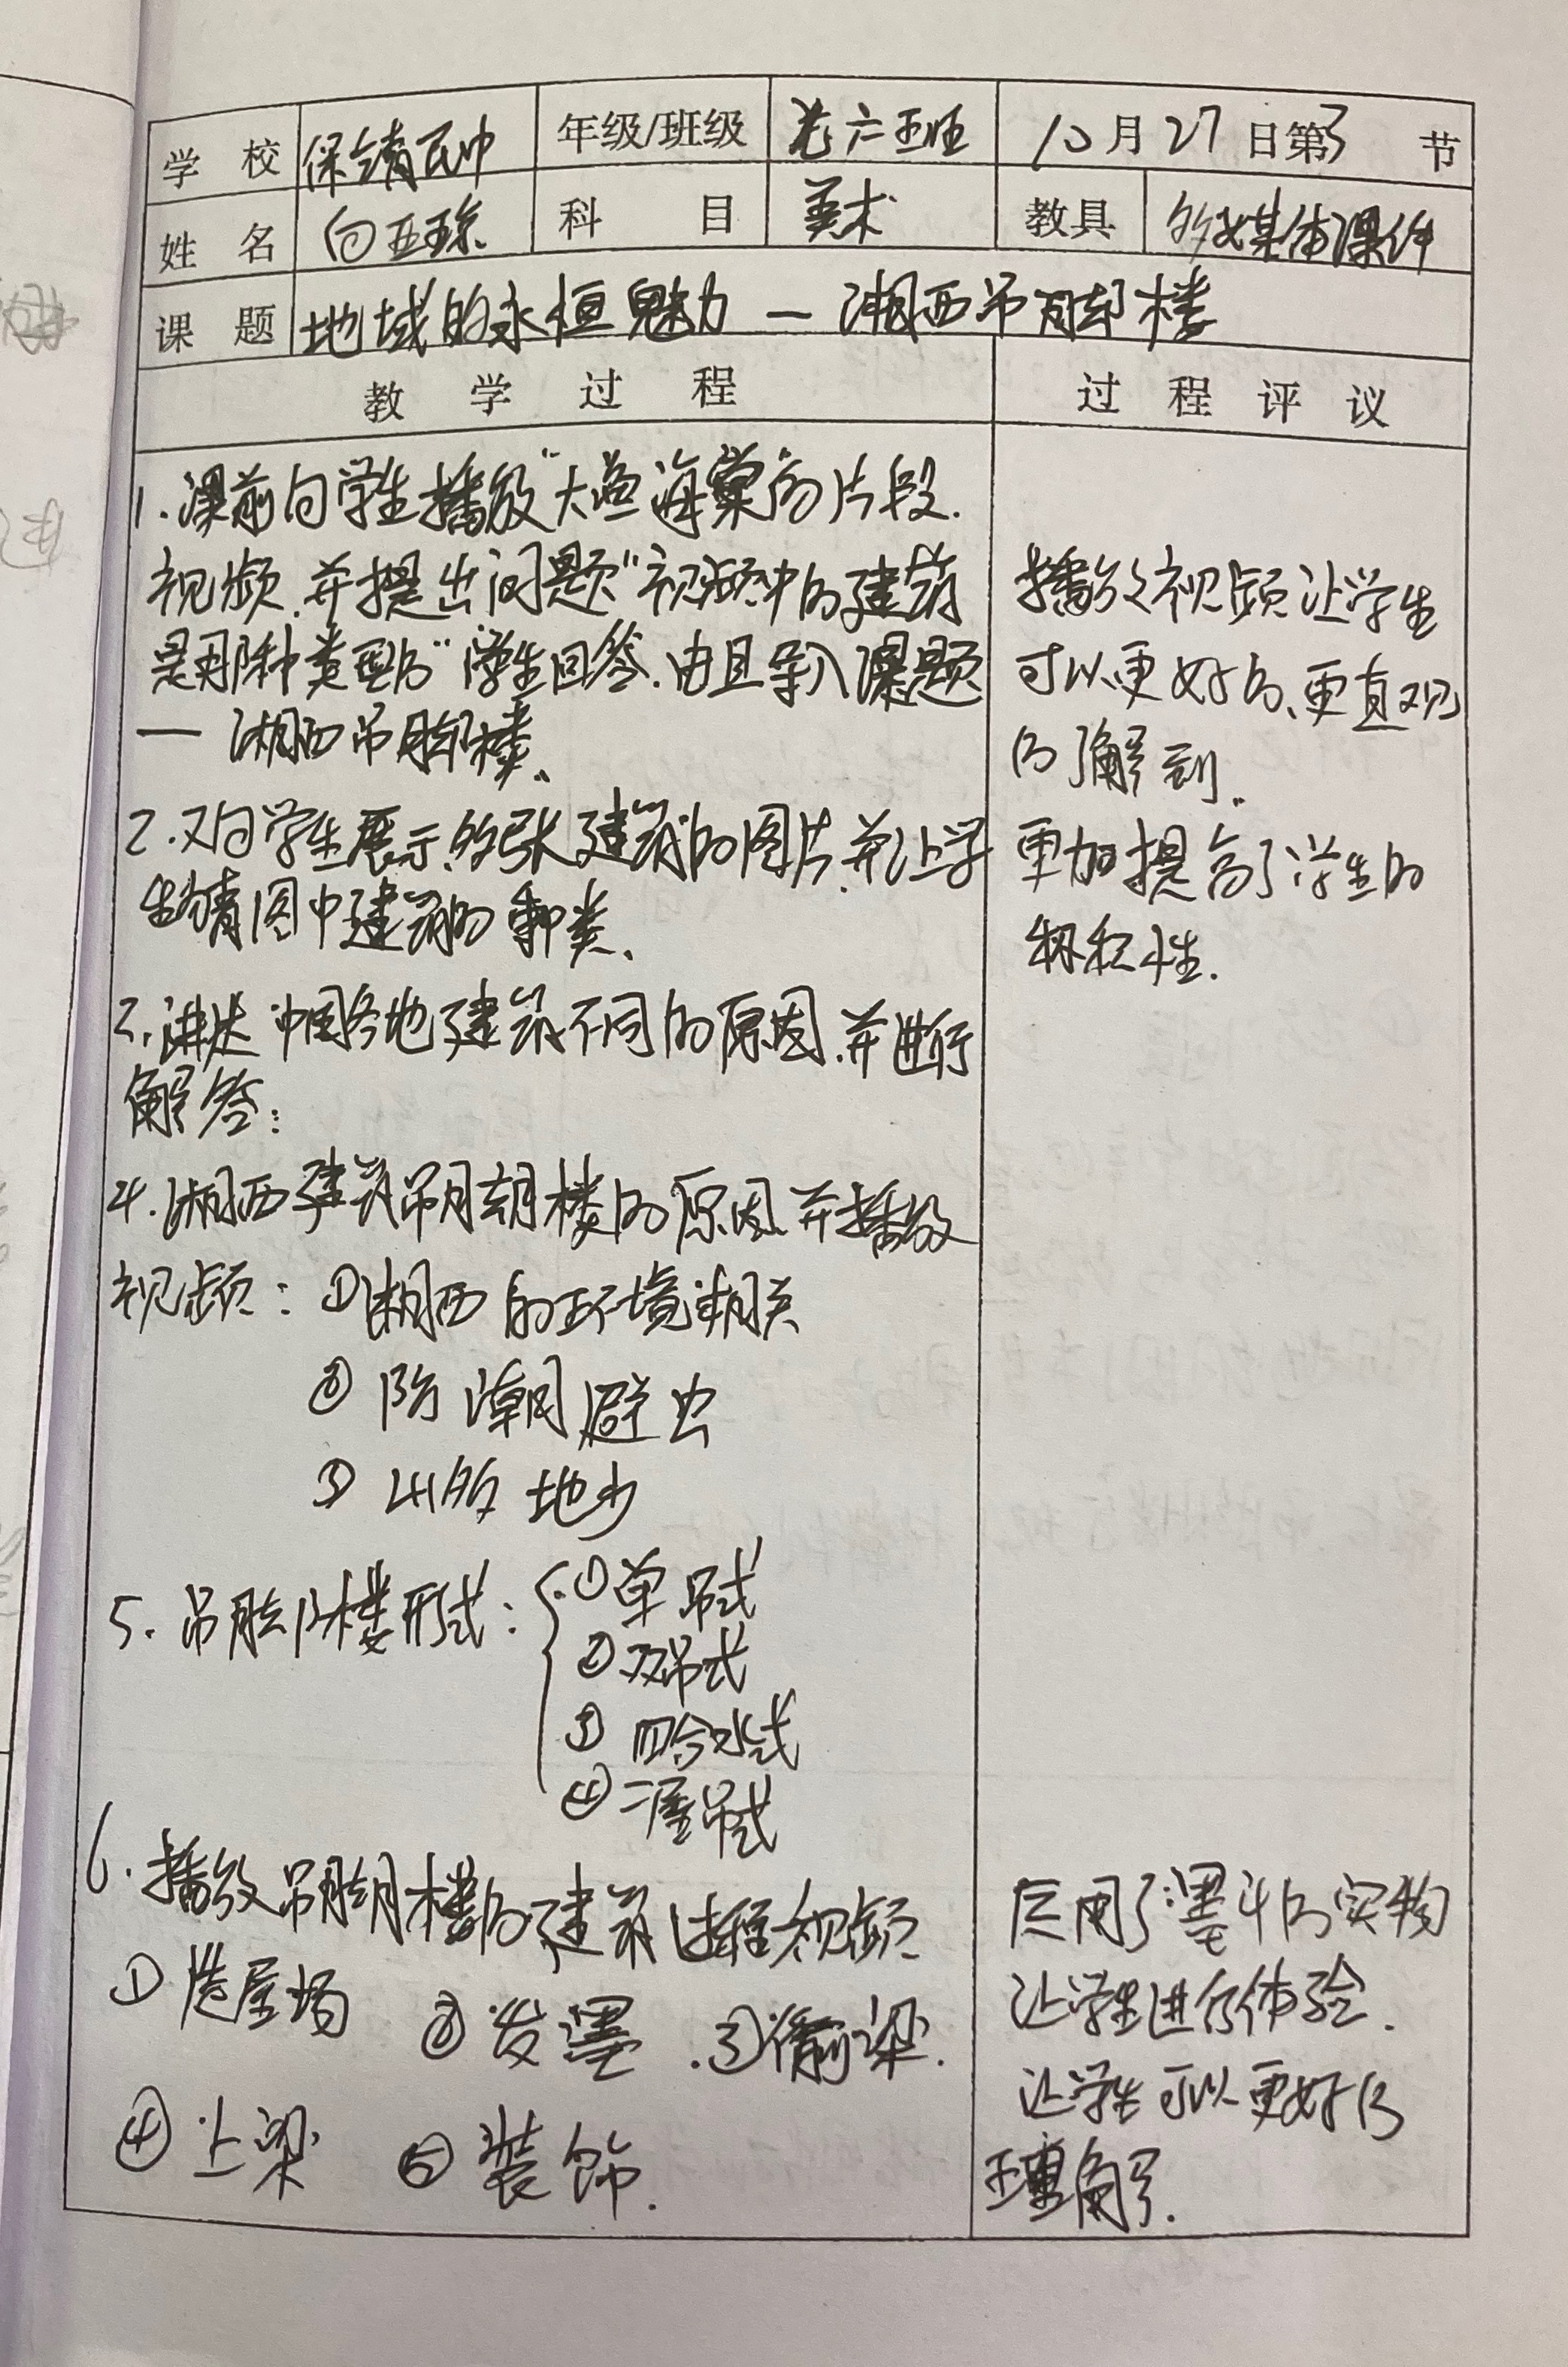 学校 保靖民中 年级/班级 六班 10月27日第3节
姓名 向亚琼 科目 美术 教具 多媒体课件
课题 地域的永恒魅力—湘西吊脚楼
教学过程
1.课前向学生播放“大鱼海棠”的片段.
视频.并提出问题“视频中的建筑
是哪种类型的”学生回答.由且导入课题
— 湘西吊脚楼、
2.对学生展示多张建筑的图片.并让学
生猜图中建筑的种类、
3.讲述中国各地建筑不同的原因.并进行
解答:
4.湘西建筑吊脚楼的原因并播放
视频:①湘西的环境相关
②防潮避虫
③山多地少
5.吊脚楼形式:①单吊式
②双吊式
③四合水式
④二屋吊式
6.播放吊脚楼的建筑过程视频
①选屋场 ②发墨.③偷梁.
④上梁 ⑤装饰.
过程评议
播放视频让学生
可以更好的、更直观
的了解到.
更加提高了学生的
积极性.
应用了墨斗的实物
让学生进行体验.
让学生可以更好的
理解.